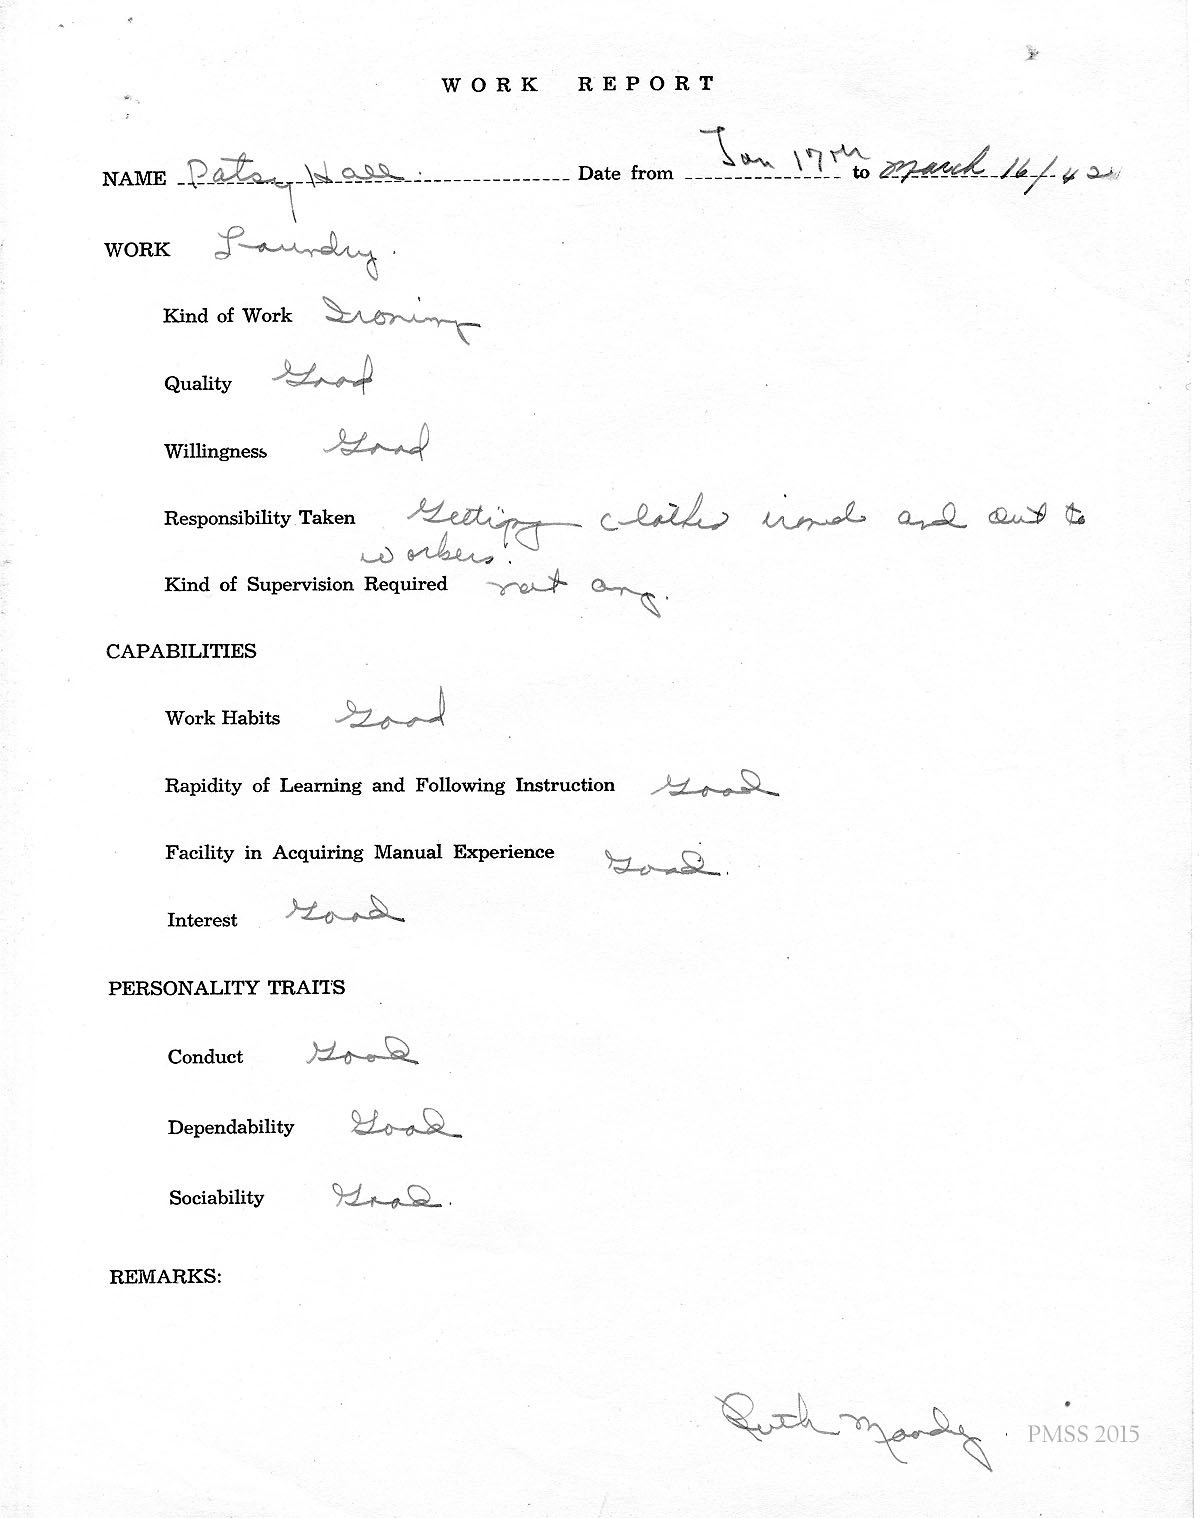 WORK REPORT
NAME Patsy Hall. Date from Jan 17th to March 16/42
WORK Laundry.
Kind of Work Ironing
Quality Good
Willingness Good
Responsibility Taken Getting clothes irond and out to
workers.
Kind of Supervision Required not any.
CAPABILITIES
Work Habits Good
Rapidity of Learning and Following Instruction Good
Facility in Acquiring Manual Experience Good.
Interest Good
PERSONALITY TRAITS
Conduct Good
Dependability Good
Sociability Good.
REMARKS:
Ruth Moody.
PMSS 2015